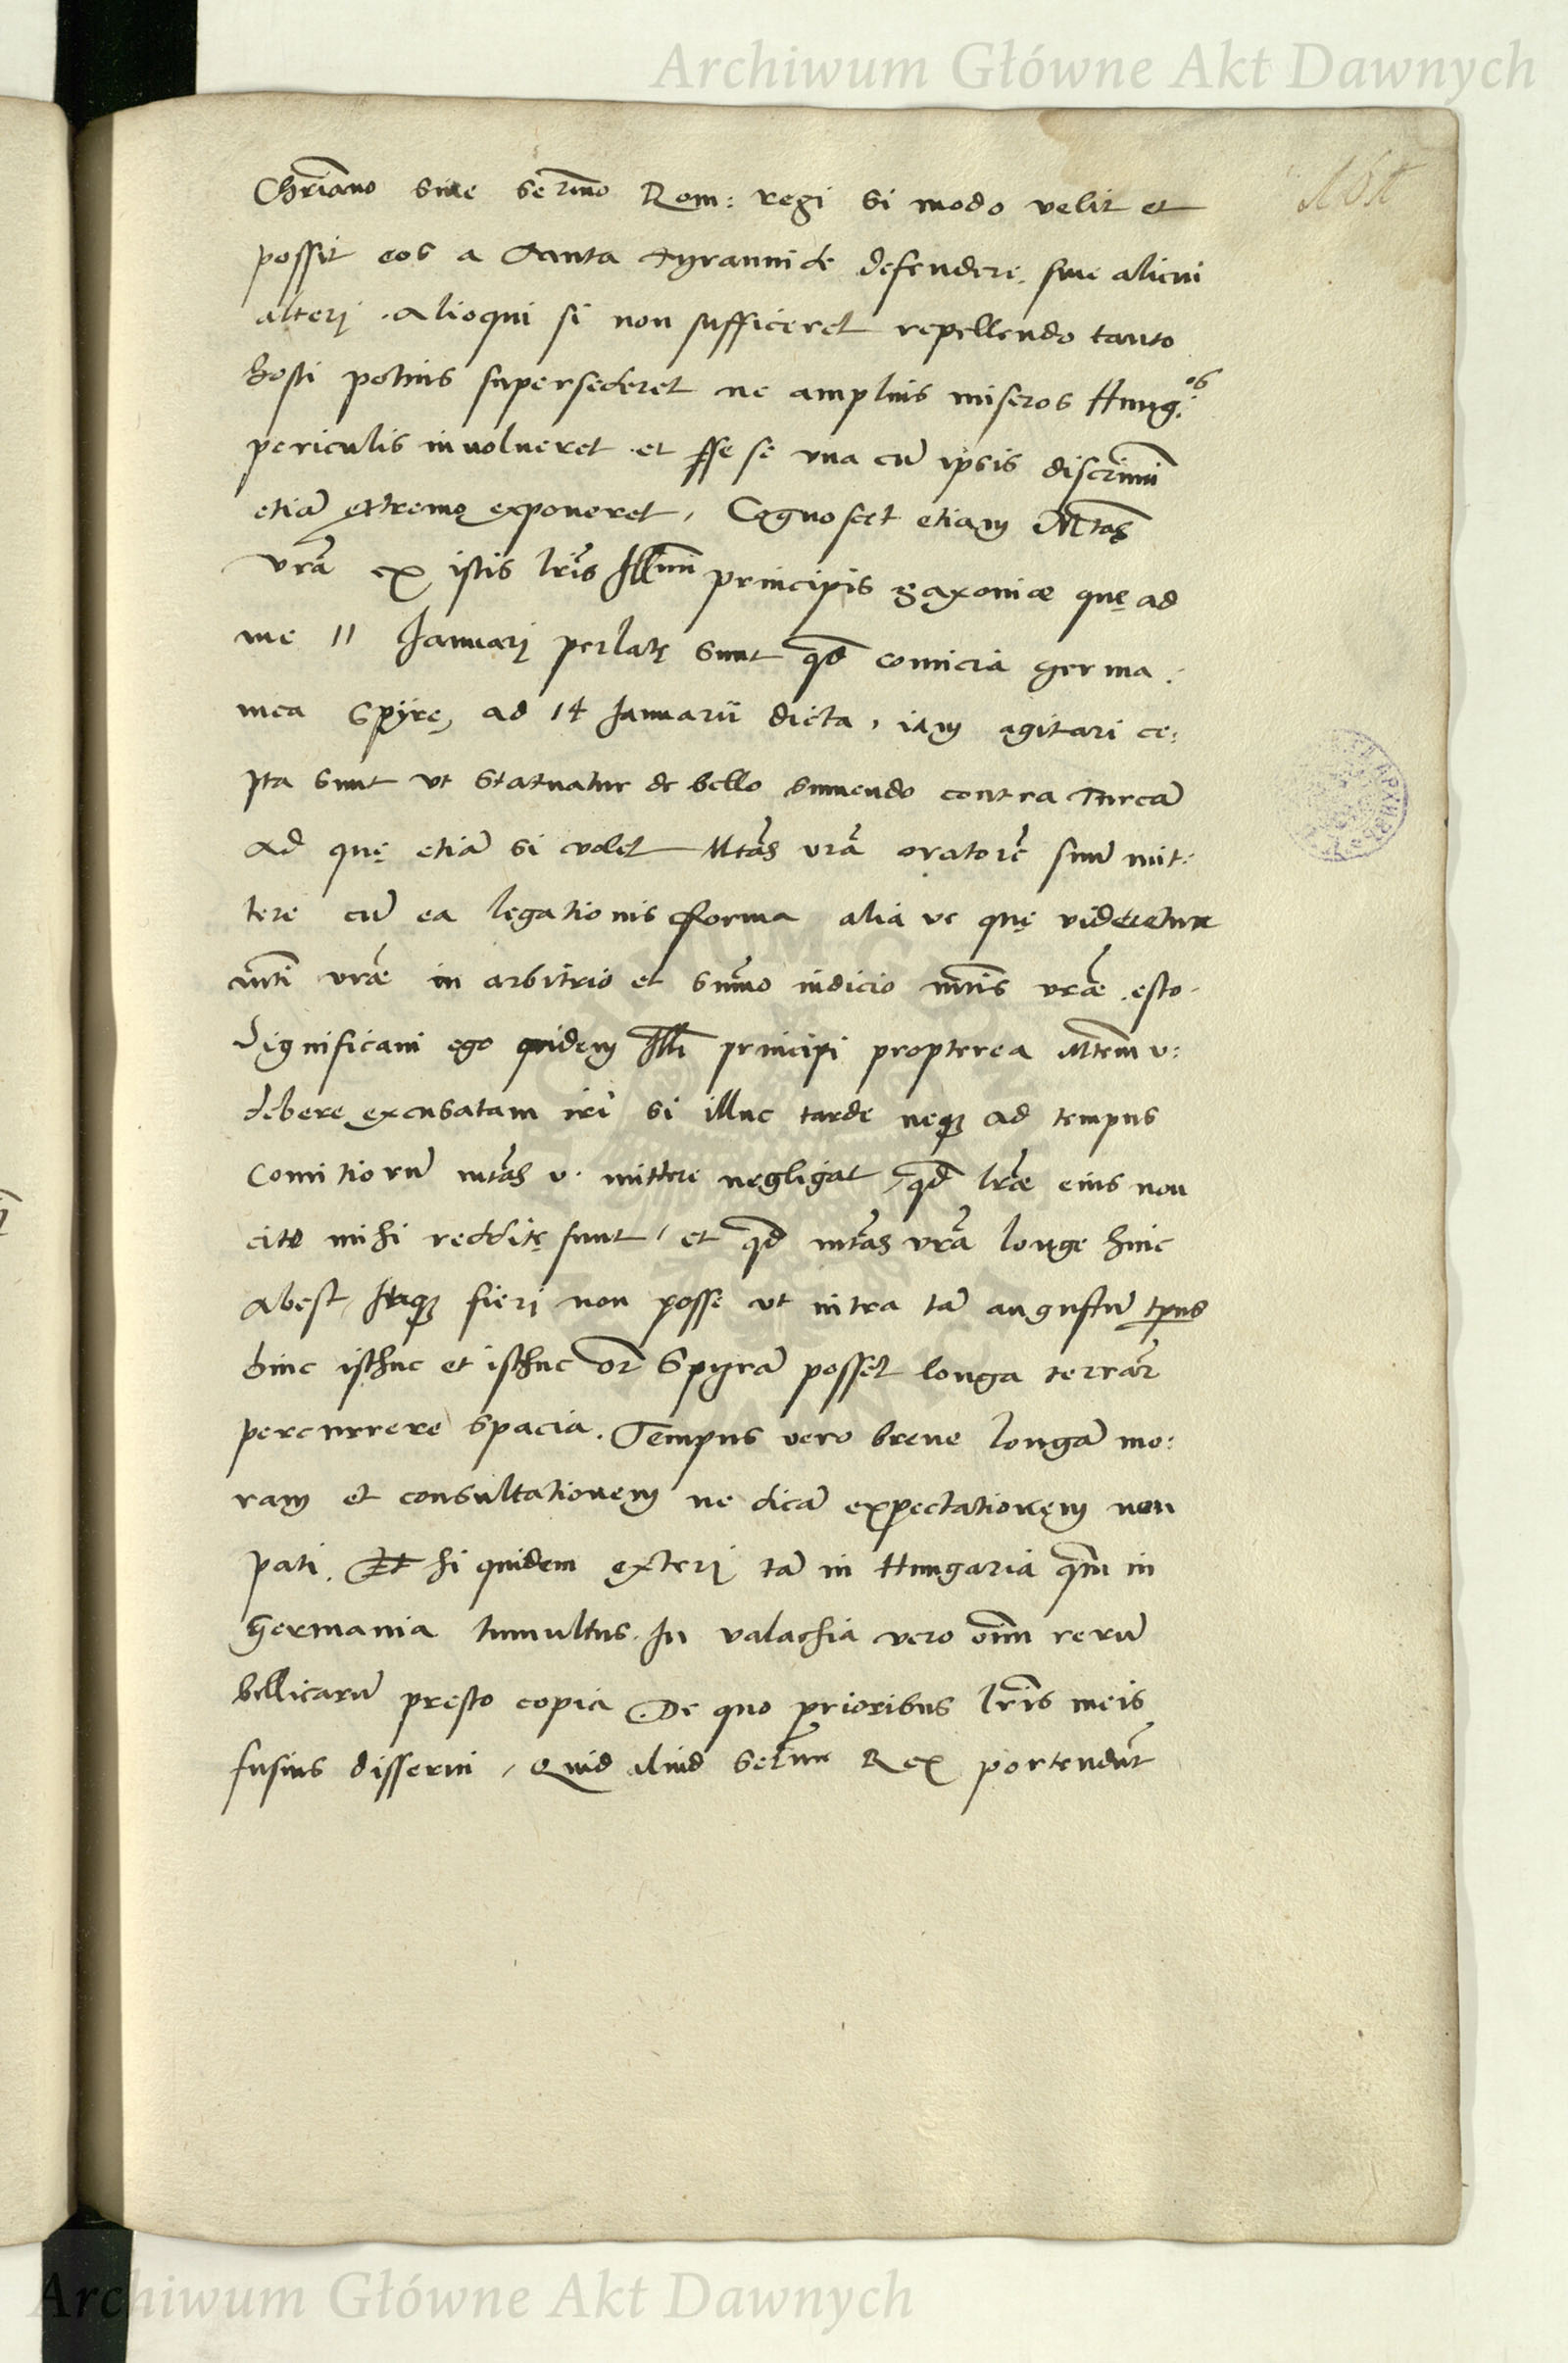 Archiwum Główne Akt Dawnych
Chr̃iano siue serm̃o Rom: regi si modo velit et
possit eos a tanta tyrannide defendere, siue alicui
alterj. Alioqui si non sufficeret repellendo tanto
hosti potius supersederet ne amplius miseros Hung:os
periculis inuolueret et sese vna cũ ipsis discrimĩ
etiã extremo exponeret, Cognoscet etiam Mtãs
vrã ex istis lrĩs Illmi principis Saxoniæ quę ad
me 11 Januarj perlatę sunt qđ comicia germa:
nica Spyrę, ad 14 Januarii dicta, iam agitari ce:
pta sunt vt statuatur de bello sumendo contra Turcã
Ad quę etiã si volet Mtãs vrã oratorẽ suũ mit:
tere cũ ea legationis forma alia ve quę videretur
mti vræ in arbitrio et sum̃o iudicio mtis vræ esto.
Significaui ego quidem Illĩ principi propterea Mtem v:
debere excusatam iri si illuc tarde neq3 ad tempus
Comitiorũ mtãs v. mittere negligat, qđ lræ eius non
cito mihi redditę sunt, et qđ mtãs vrã longe hinc
abest, Itaq3 fieri non posse vt intra tã angustũ tpus
hinc isthuc et isthuc or̃ Spyrã posset longa terrar̃
percurrere spacia. Tempus vero breue longã mo:
ram et consultationem ne dicã expectationem non
pati. Et hi quidem exterj tã in Hungaria qm̃ in
Germania tumultus. In valachia vero oĩm rerũ
bellicarũ presto copia De quo prioribus lrĩs meis
fusius disserui, Quid aliud Serme Rex portendũt
Archiwum Główne Akt Dawnych